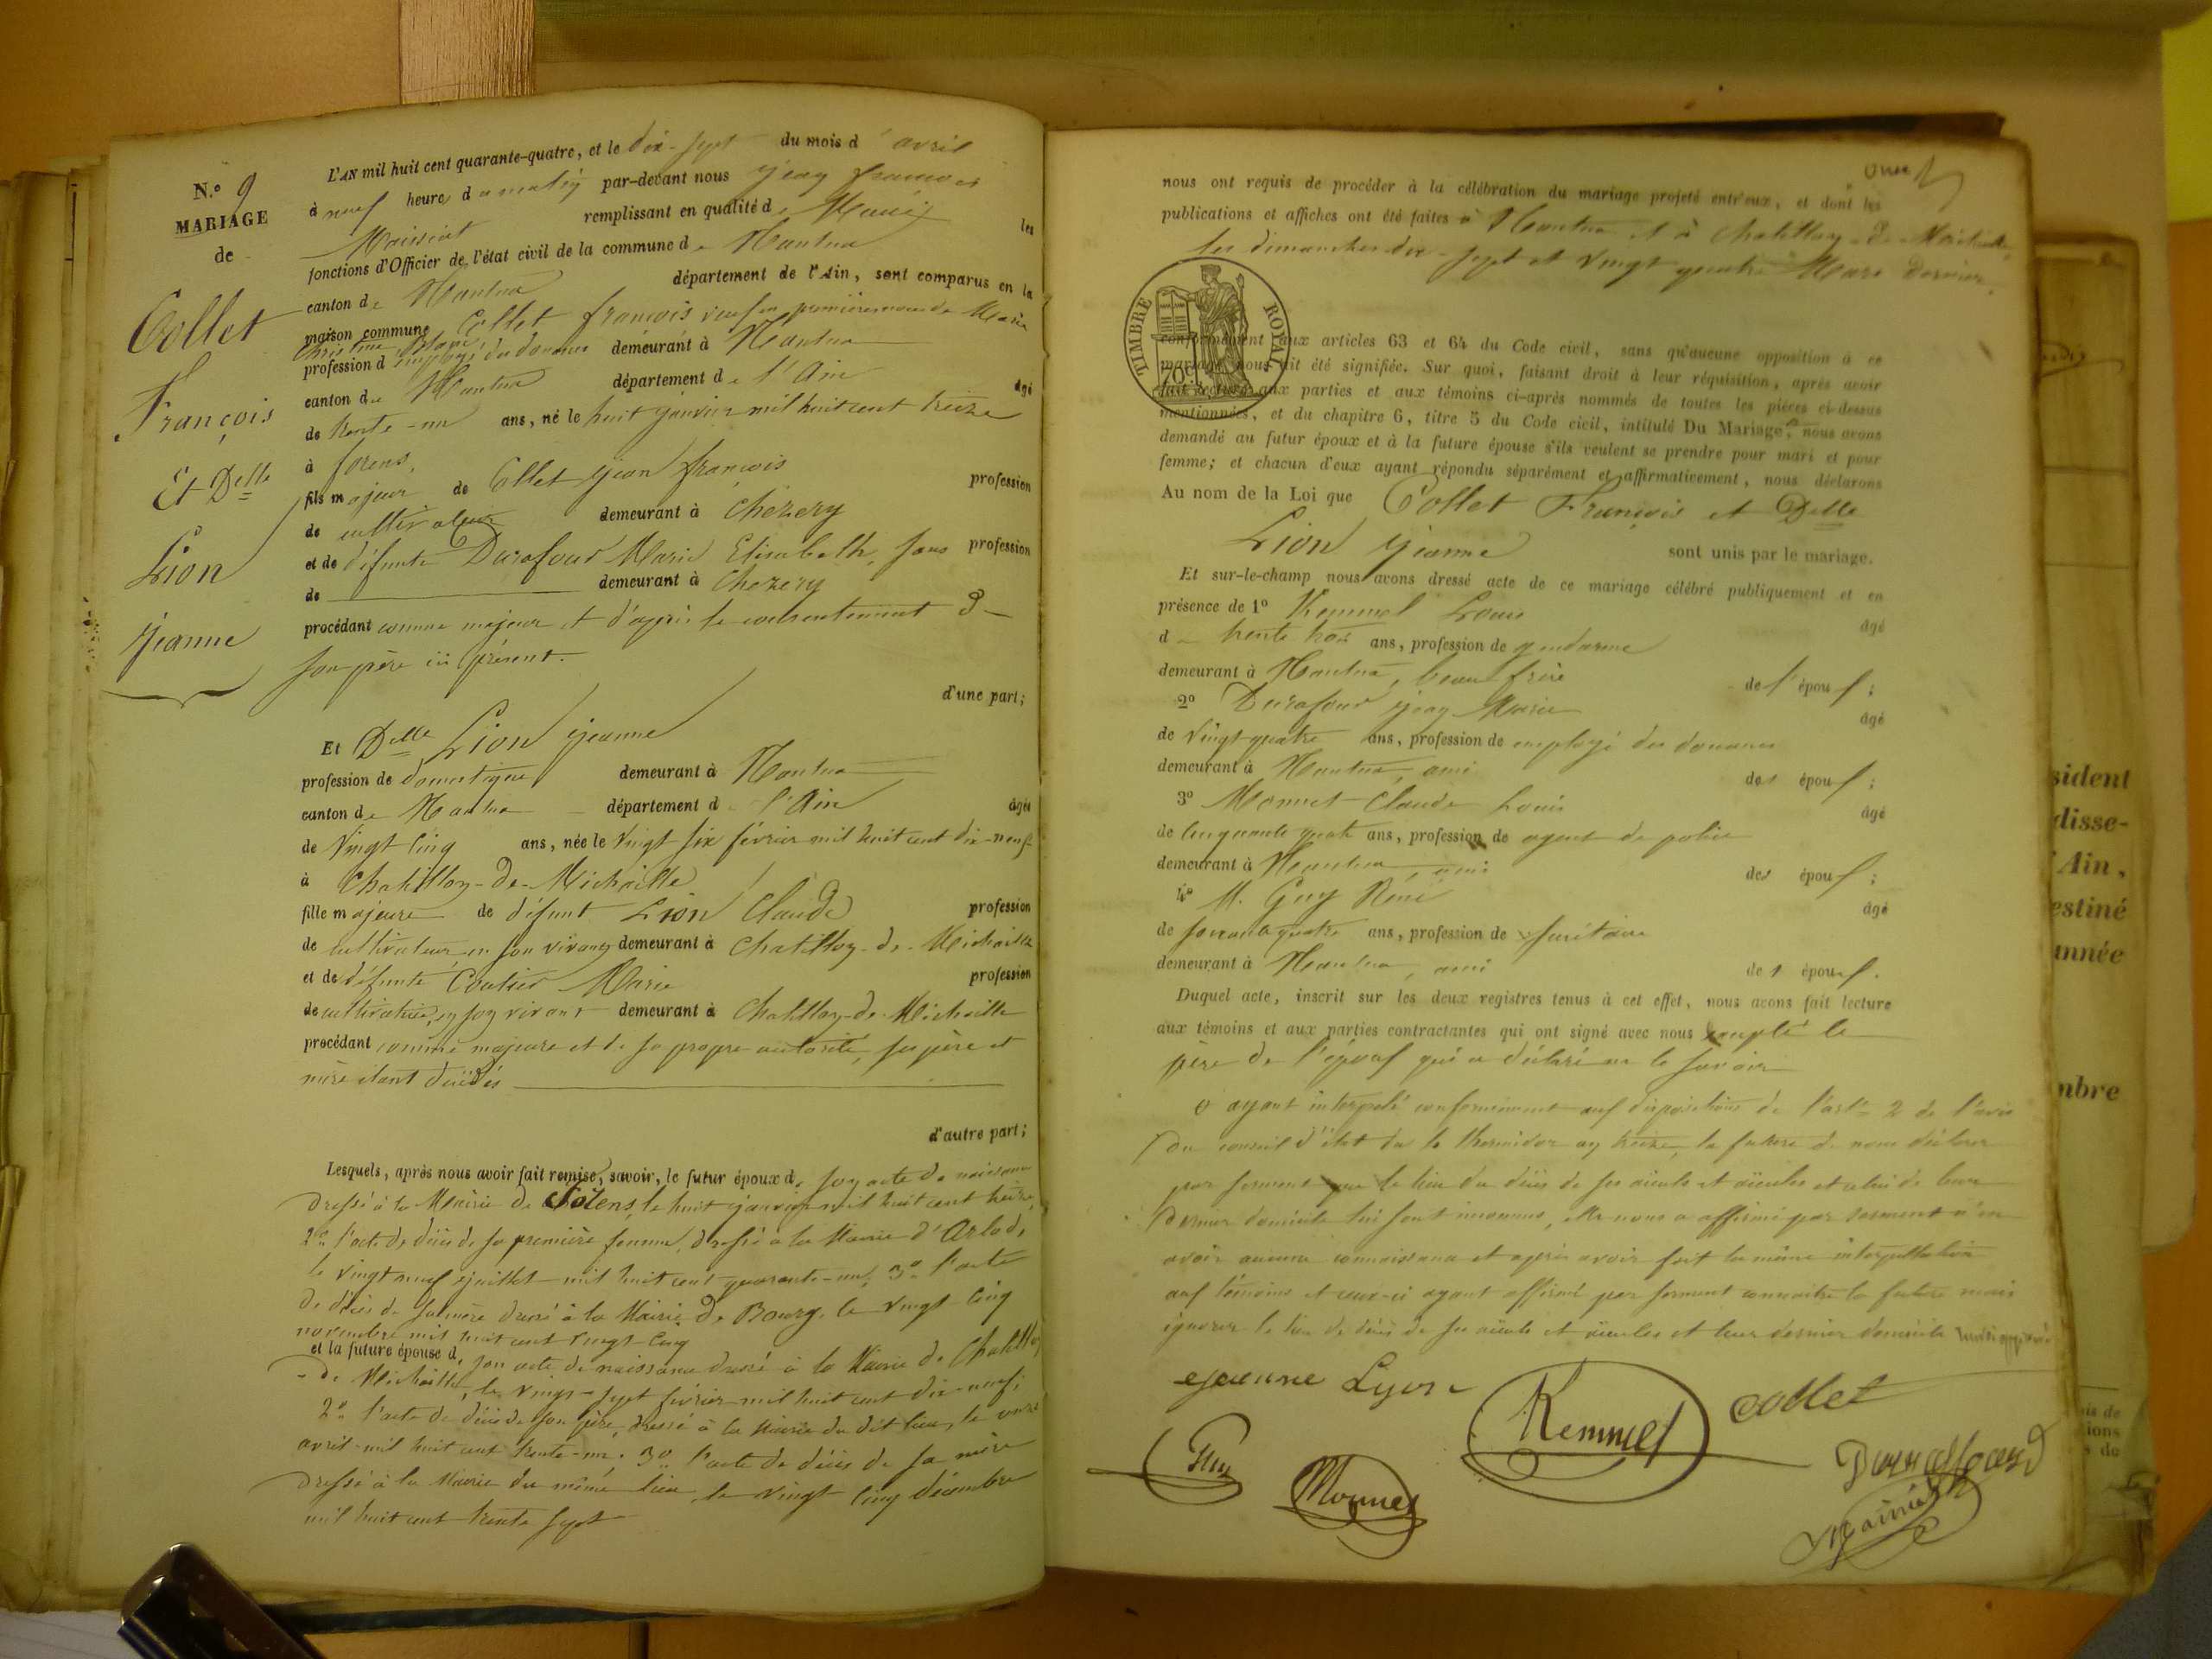 N.o 9
MARIAGE
de
Collet
François
Et Delle
Lion
Jeanne
L'AN mil huit cent quarante-quatre, et le dix-sept du mois d'avril
à neuf heure du matin par-devant nous Jean françois
Moissiat remplissant en qualité de Maire les
fonctions d'Officier de l'état civil de la commune de Nantua
canton de Nantua département de l'Ain, sont comparus en la
maison commune Collet françois veuf en premières noces de Marie
Christine
profession d'employé des douanes demeurant à Nantua
canton de Nantua département de l'Ain âgé
de trente-un ans, né le huit janvier mil huit cent treize
à forens,
fils majeur de Collet Jean françois profession
de cultivateur demeurant à Chezery
et de défunte Durafour Marie Elisabeth, sans profession
de demeurant à Chezery
procédant comme majeur et d'après le consentement de
son père ici présent.
d'une part;
Et Delle Lion Jeanne
profession de domestique demeurant à Nantua
canton de Nantua département de l'Ain âgée
de vingt cinq ans, née le vingt six février mil huit cent dix-neuf
à Chatillon-de-Michaille
fille majeure de défunt Lion Claude profession
de cultivateur en son vivant demeurant à Chatillon-de-Michaille
et de défunte Coutier Marie profession
de cultivatrice, en son vivant demeurant à Chatillon-de-Michaille
procédant comme majeure et de sa propre autorité, ses père et
mère étant décédés
d'autre part;
Lesquels, après nous avoir fait remise, savoir, le futur époux de son acte de naissance
dressé à la Mairie de le huit janvier mil huit cent treize,
2o l'acte de décès de sa première femme, dressé à la Mairie d'Arlod,
le vingt neuf juillet mil huit cent quarante-un, 3o l'acte
de décès de sa mère dressé à la Mairie de Bourg, le vingt cinq
novembre mil huit cent vingt cinq
et la future épouse de son acte de naissance dressé à la Mairie de Chatillon
-de Michaille, le vingt-sept février mil huit cent dix-neuf;
2o l'acte de décès de son père, dressé à la Mairie du dit lieu, le onze
avril mil huit cent trente-un. 3o l'acte de décès de sa mère
dressé à la Mairie du même lieu, le vingt cinq décembre
mil huit cent trente sept
onze
nous ont requis de procéder à la célébration du mariage projeté entr'eux, et dont les
publications et affiches ont été faites à Nantua et à Chatillon-de-Michaille,
les dimanches dix-sept et vingt quatre Mars dernier.
TIMBRE ROYAL
70c
conformément aux articles 63 et 64 du Code civil, sans qu'aucune opposition à ce
mariage nous ait été signifiée. Sur quoi, faisant droit à leur réquisition, après avoir
fait lecture aux parties et aux témoins ci-après nommés de toutes les pièces ci-dessus
mentionnées, et du chapitre 6, titre 5 du Code civil, intitulé Du Mariage, nous avons
demandé au futur époux et à la future épouse s'ils veulent se prendre pour mari et pour
femme; et chacun d'eux ayant répondu séparément et affirmativement, nous déclarons
Au nom de la Loi que Collet François et Delle
Lion Jeanne sont unis par le mariage.
Et sur-le-champ nous avons dressé acte de ce mariage célébré publiquement et en
présence de 1o Kemmel Louis âgé
de trente trois ans, profession de gendarme
demeurant à Nantua, beau frère de l'époux;
2o Durafour Jean Marie âgé
de vingt quatre ans, profession de employé des douanes
demeurant à Nantua, ami des époux;
3o Monnet Claude Louis âgé
de cinquante quatre ans, profession de agent de police
demeurant à Nantua, ami des époux;
4o M. Guy René âgé
de soixante quatre ans, profession de
demeurant à Nantua, ami des époux.
Duquel acte, inscrit sur les deux registres tenus à cet effet, nous avons fait lecture
aux témoins et aux parties contractantes qui ont signé avec nous excepté le
père de l'époux qui a déclaré ne le savoir
ayant interpelé conformément aux dispositions de l'art. 2 de l'avis
du conseil d'état du 4 thermidor an treize, la future de nous déclarer
par serment que le lieu du décès de ses aïeuls et aïeules et celui de leur
dernier domicile lui sont inconnus, elle nous a affirmé par serment n'en
avoir aucune connaissance et après avoir fait la même interpellation
aux témoins et ceux-ci ayant affirmé par serment connaître la future mais
ignorer le lieu de décès de ses aïeuls et aïeules et leur dernier domicile
Jeanne Lyon
Kemmel
Collet
Guy
Monnet
sident
disse-
Ain,
estiné
année
mbre